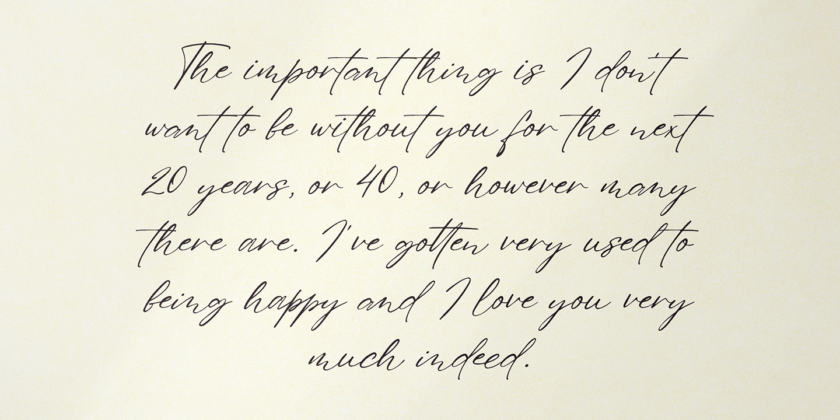 The important thing is I don't
want to be without you for the next
20 years, or 40, or however many
there are. I've gotten very used to
being happy and I love you very
much indeed.